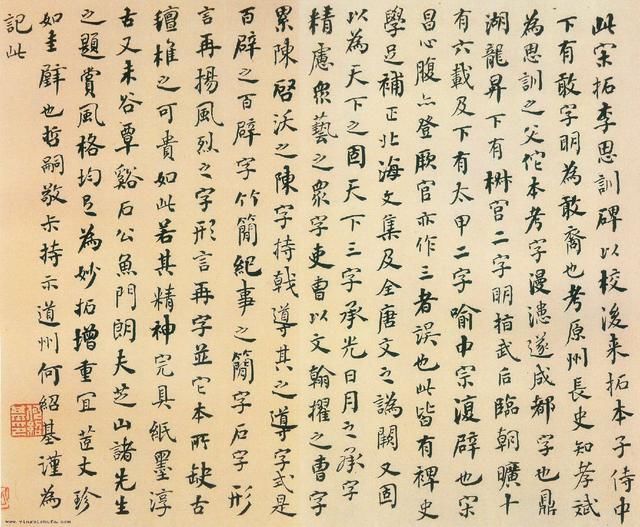 此宋拓李思訓碑以校後来拓本子侍中
下有敢字明為敢裔也考原州長史知孝斌
為思訓之父佗本考字漫漶遂成都字也鼎
湖龍昇下有椒宫二字明指武后臨朝曠十
有六載及下有太甲二字喻中宗復辟也宋
昌心腹亦登厥官亦作三者誤也此皆有裨史
學足補正北海文集及全唐文之譌闕又固
以為天下之固天下三字承光日月之承字
精慮衆藝之衆字吏曹以文翰擢之曹字
累陳啓沃之陳字持戟導其之導字式是
百辟之百辟字竹簡紀事之簡字石字形
言再揚風烈之字形言再字並它本所缺古
氊椎之可貴如此若其精神完具紙墨淳
古又未谷覃谿石公魚門朗夫芝山諸先生
之題賞風格均足為妙拓增重宜丈珍
如圭璧也哲嗣敬持示道州何紹基謹為
記此
www.yingbishufa.com